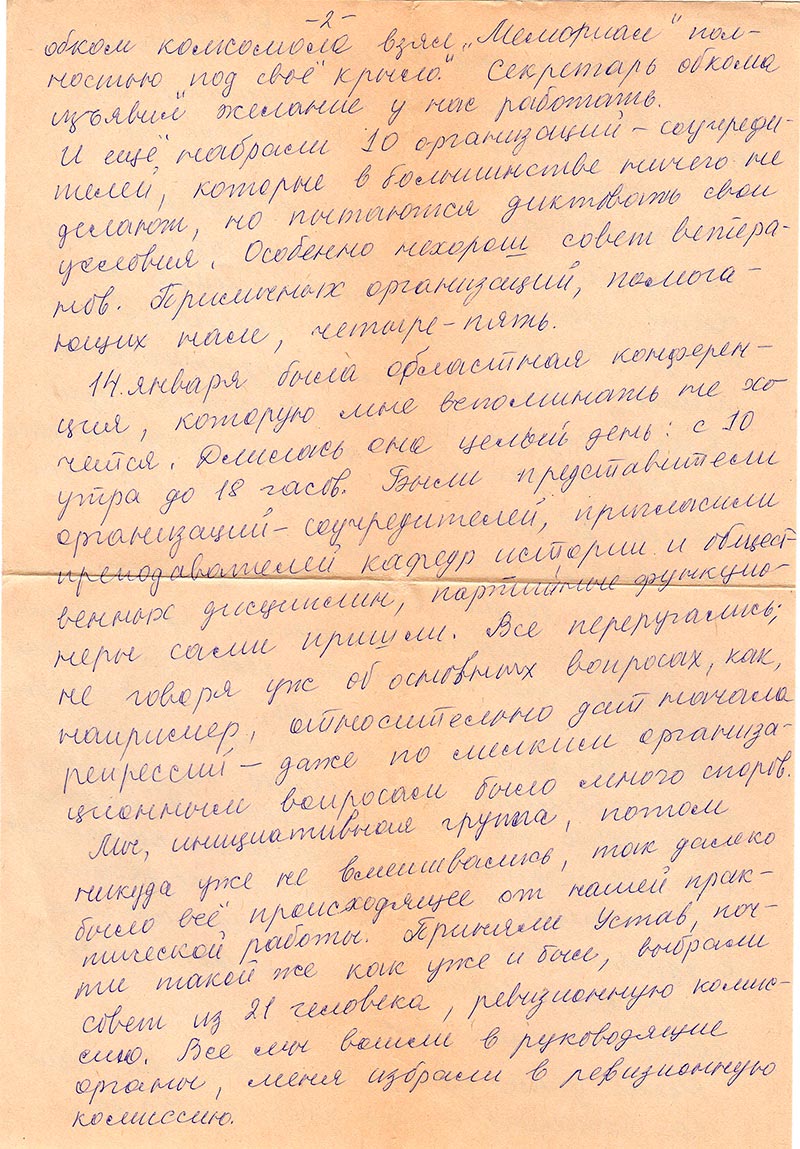 -2-
обком комсомола взял „Мемориал" пол-
ностью под своё "крыло." Секретарь обкома
изъявил желание у нас работать.
И ещё набрали 10 организаций - соучреди-
телей, которые в большинстве ничего не
делают, но пытаются диктовать свои
условия. Особенно нехорош совет ветера-
нов. Приличных организаций, помога-
ющих нам, четыре-пять.
14 января была областная конферен-
ция, которую мне вспоминать не хо-
чется. Длилась она целый день: с 10
утра до 18 часов. Были представители
организаций - соучредителей, пригласили
преподавателей кафедр истории и общест-
венных дисциплин, партийные функцио-
неры сами пришли. Все переругались;
не говоря уж об основных вопросах, как,
например, относительно дат начала
репрессий - даже по мелким организа-
ционным вопросам было много споров.
Мы, инициативная группа, потом
никуда уже не вмешивались, так далеко
было всё происходящее от нашей прак-
тической работы. Приняли Устав, поч-
ти такой же как уже и был, выбрали
совет из 21 человека, ревизионную комис-
сию. Все мы вошли в руководящие
органы, меня избрали в ревизионную
комиссию.